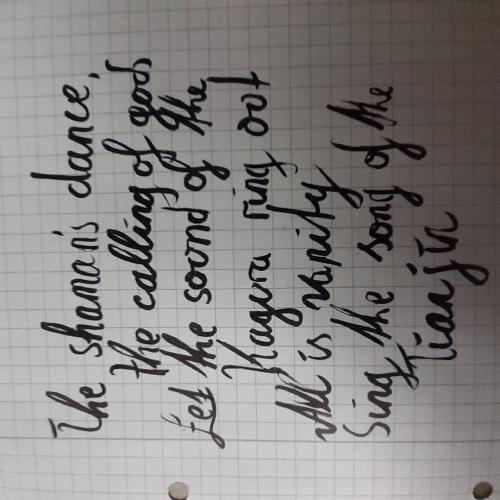 The shaman's dance,
the calling of gods
Let the sound of the
Kagura ring out
All is vanity
Sing the song of the
Tianjin